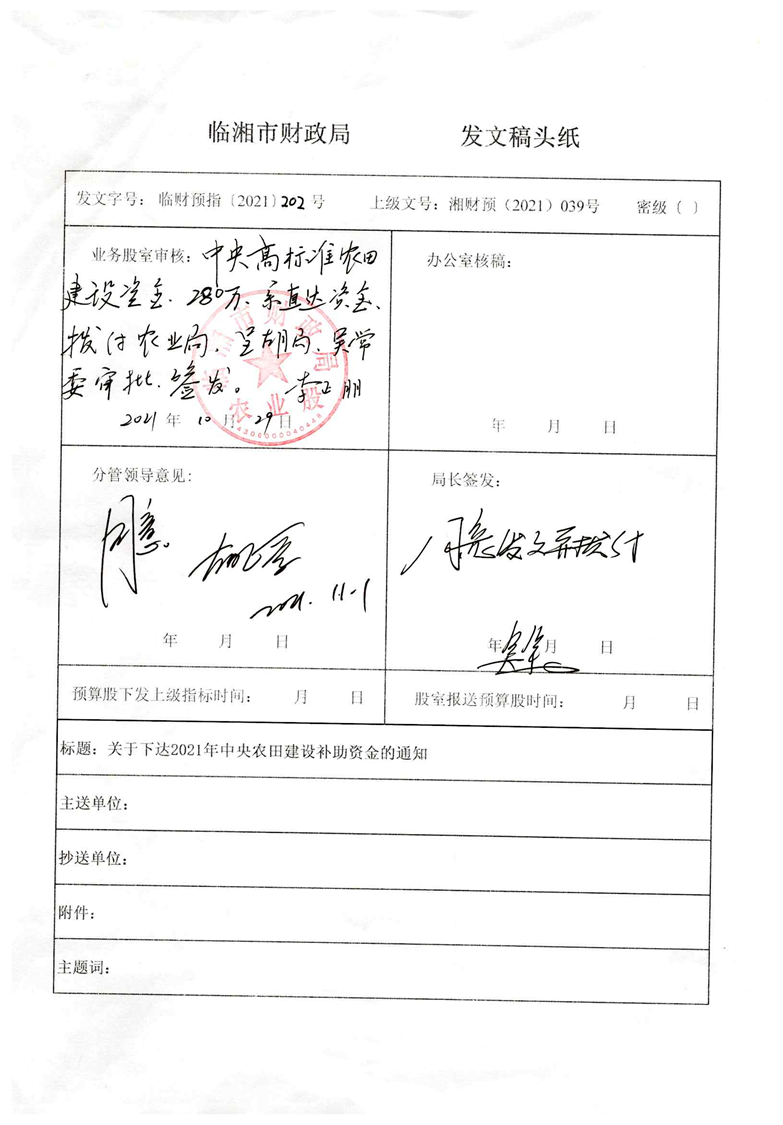 临湘市财政局 发文稿头纸
发文字号： 临财预指〔2021〕202号 上级文号：湘财预（2021）039号 密级（ ）
业务股室审核：中央高标准农田
建设资金、280万、系直达资金、
拨付农业局，呈胡局、吴常
委审批、签发。 李正朋
2021年10月29日
临湘市财政局
农业股
4306000040448
办公室核稿：
年 月 日
分管领导意见：
同意。
2021.11-1
年 月 日
局长签发：
同意发文并拨付
年 月 日
预算股下发上级指标时间： 月 日
股室报送预算股时间： 月 日
标题：关于下达2021年中央农田建设补助资金的通知
主送单位：
抄送单位：
附件：
主题词：